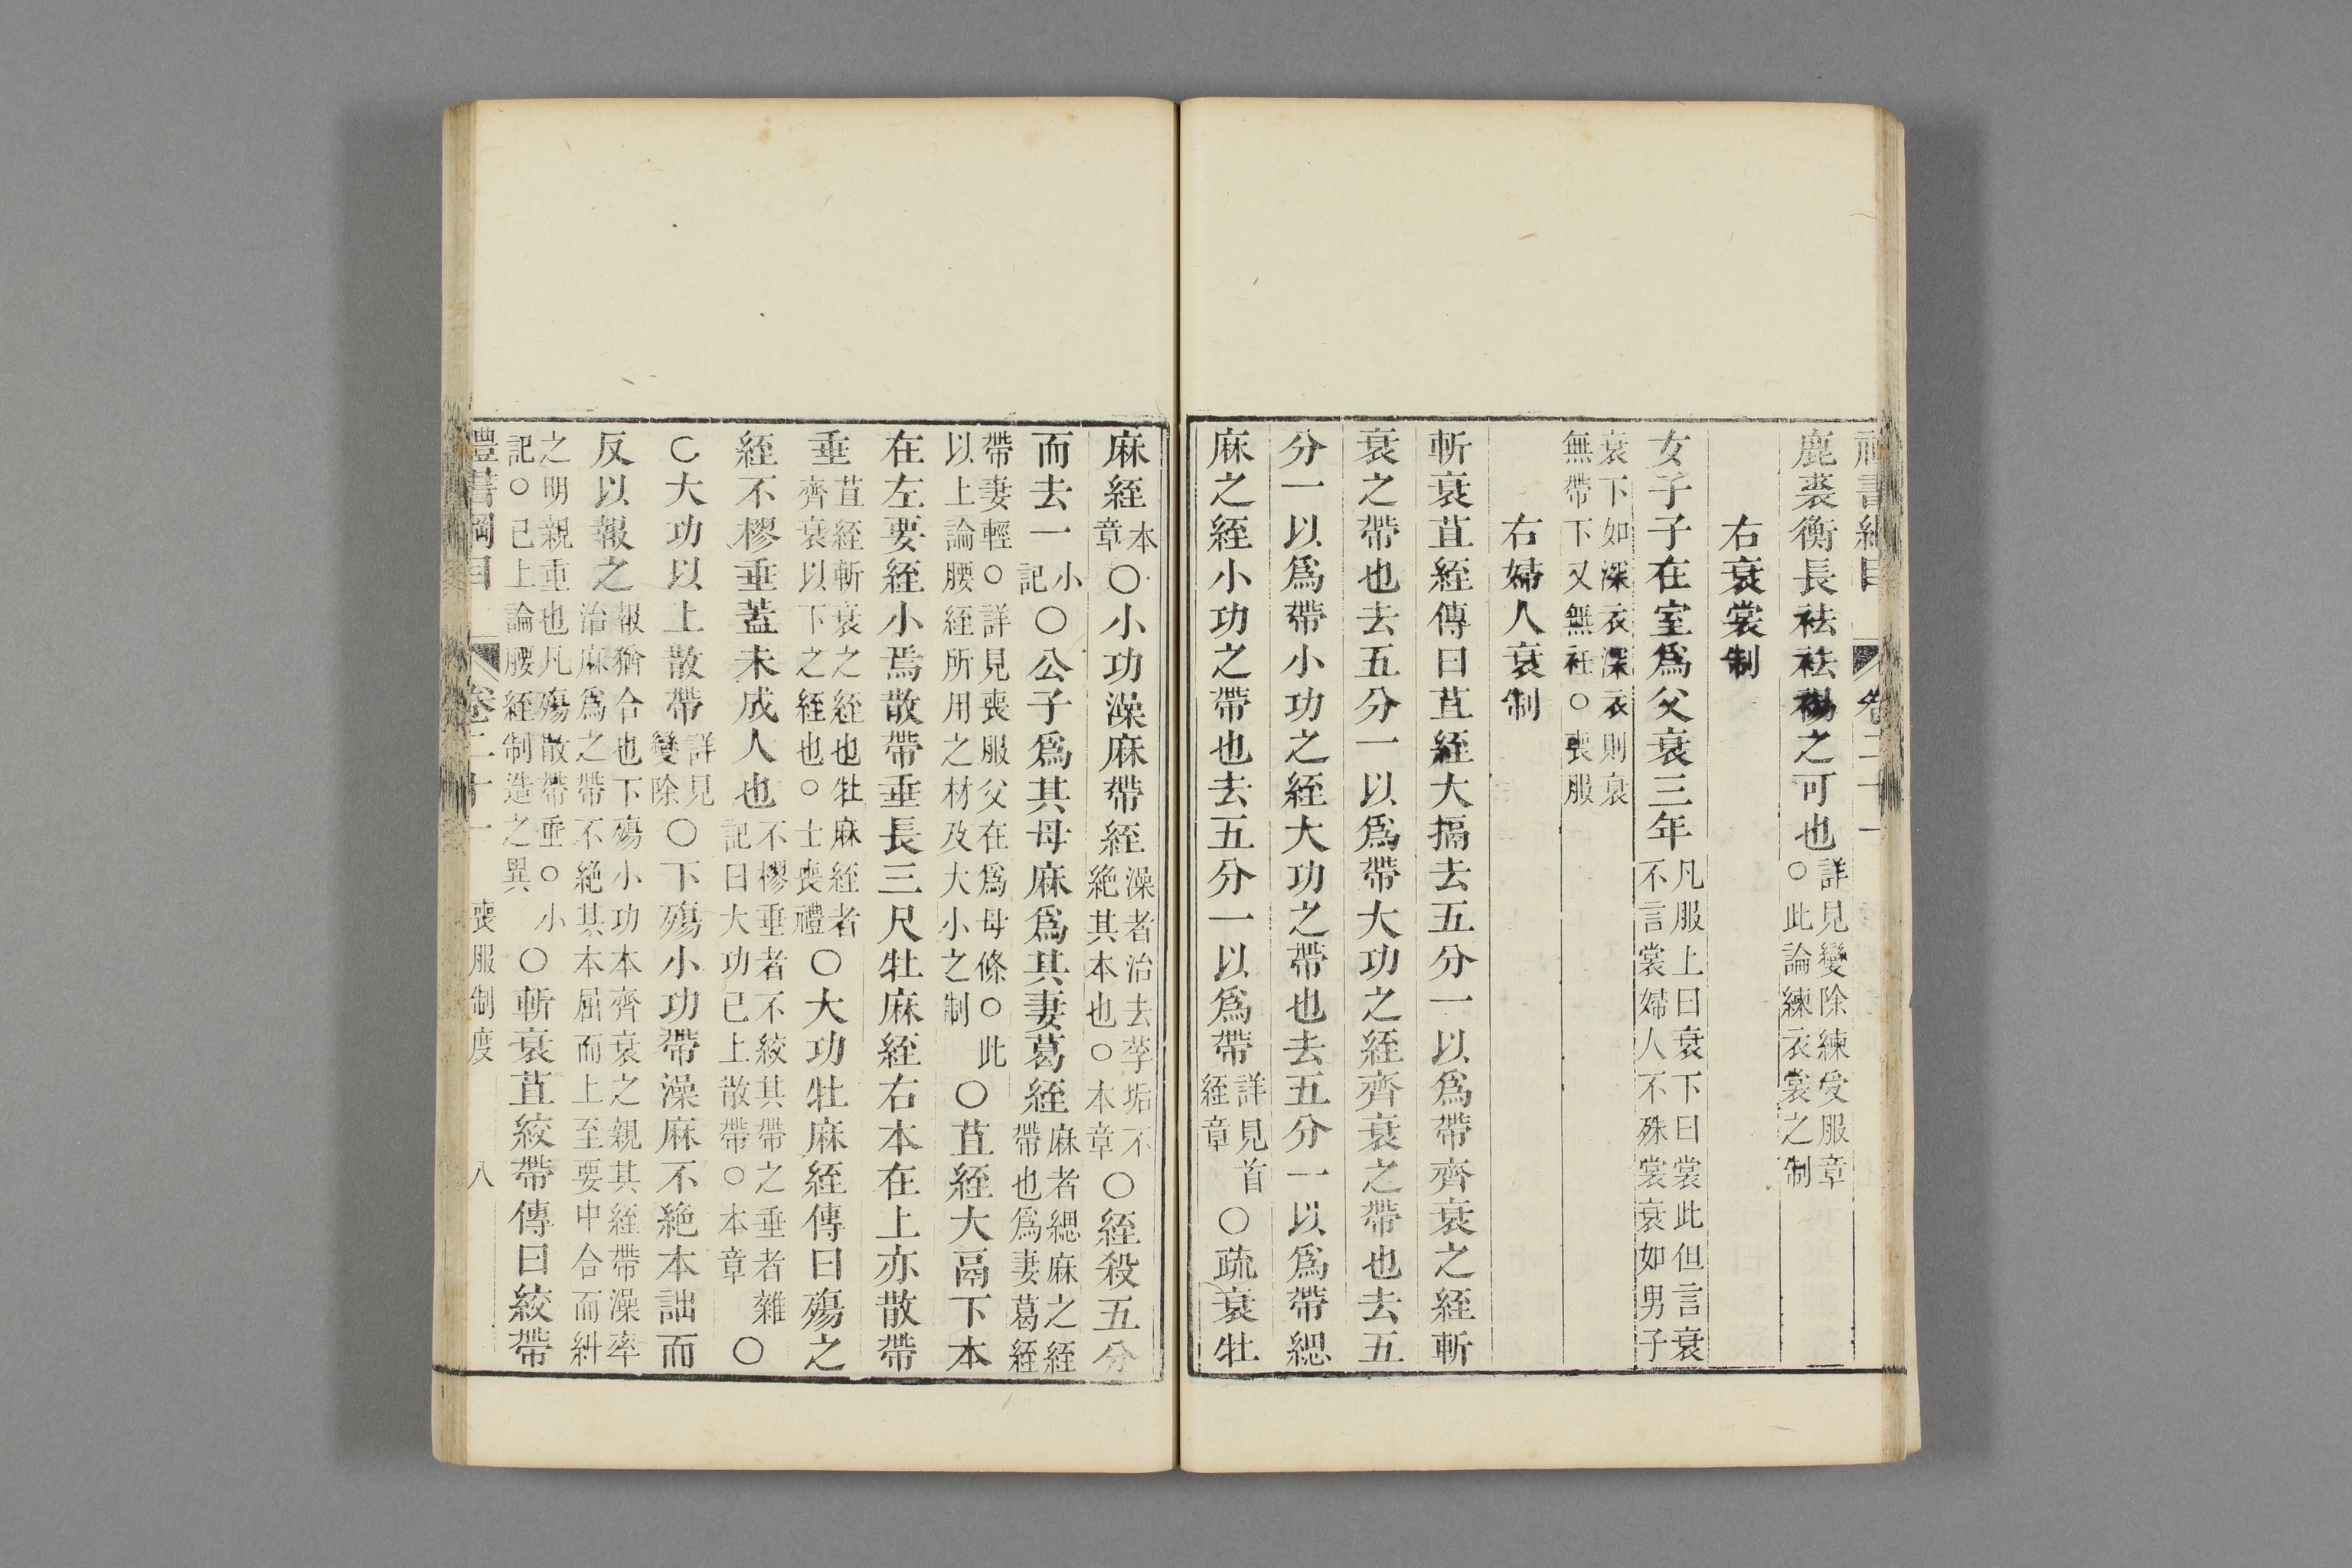 禮書綱目 卷二十一
鹿裘衡長袪袪裼之可也詳見變除練受服章○此論練衣裳之制
右衰裳制
女子子在室爲父衰三年凡服上曰衰下曰裳此但言衰不言裳婦人不殊裳衰如男子
衰下如深衣深衣則衰無帶下又無衽○喪服
右婦人衰制
斬衰苴絰傳曰苴絰大搹去五分一以爲帶齊衰之絰斬
衰之帶也去五分一以爲帶大功之絰齊衰之帶也去五
分一以爲帶小功之絰大功之帶也去五分一以爲帶緦
麻之絰小功之帶也去五分一以爲帶詳見首絰章○疏衰牡
麻絰本章○小功澡麻帶絰澡者治去莩垢不絶其本也○本章○絰殺五分
而去一小記○公子爲其母麻爲其妻葛絰麻者緦麻之絰帶也爲妻葛絰
帶妻輕○詳見喪服父在爲母條○此以上論腰絰所用之材及大小之制○苴絰大鬲下本
在左要絰小焉散帶垂長三尺牡麻絰右本在上亦散帶
垂苴絰斬衰之絰也牡麻絰者齊衰以下之絰也○士喪禮○大功牡麻絰傳曰殤之
絰不樛垂蓋未成人也不樛垂者不絞其帶之垂者雜記曰大功已上散帶○本章○
○大功以上散帶詳見變除○下殤小功帶澡麻不絶本詘而
反以報之報猶合也下殤小功本齊衰之親其絰帶澡率治麻爲之帶不絶其本屈而上至要中合而糾
之明親重也凡殤散帶垂○小記○已上論腰絰制造之異○斬衰苴絞帶傳曰絞帶
禮書綱目 卷二十一 喪服制度 八